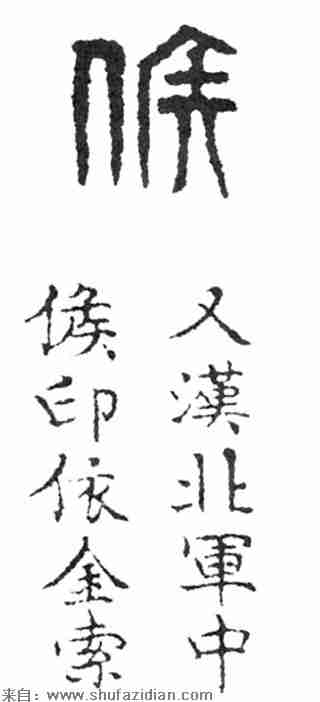 候
又漢北軍中
候印依金索
来自：www.shufazidian.com